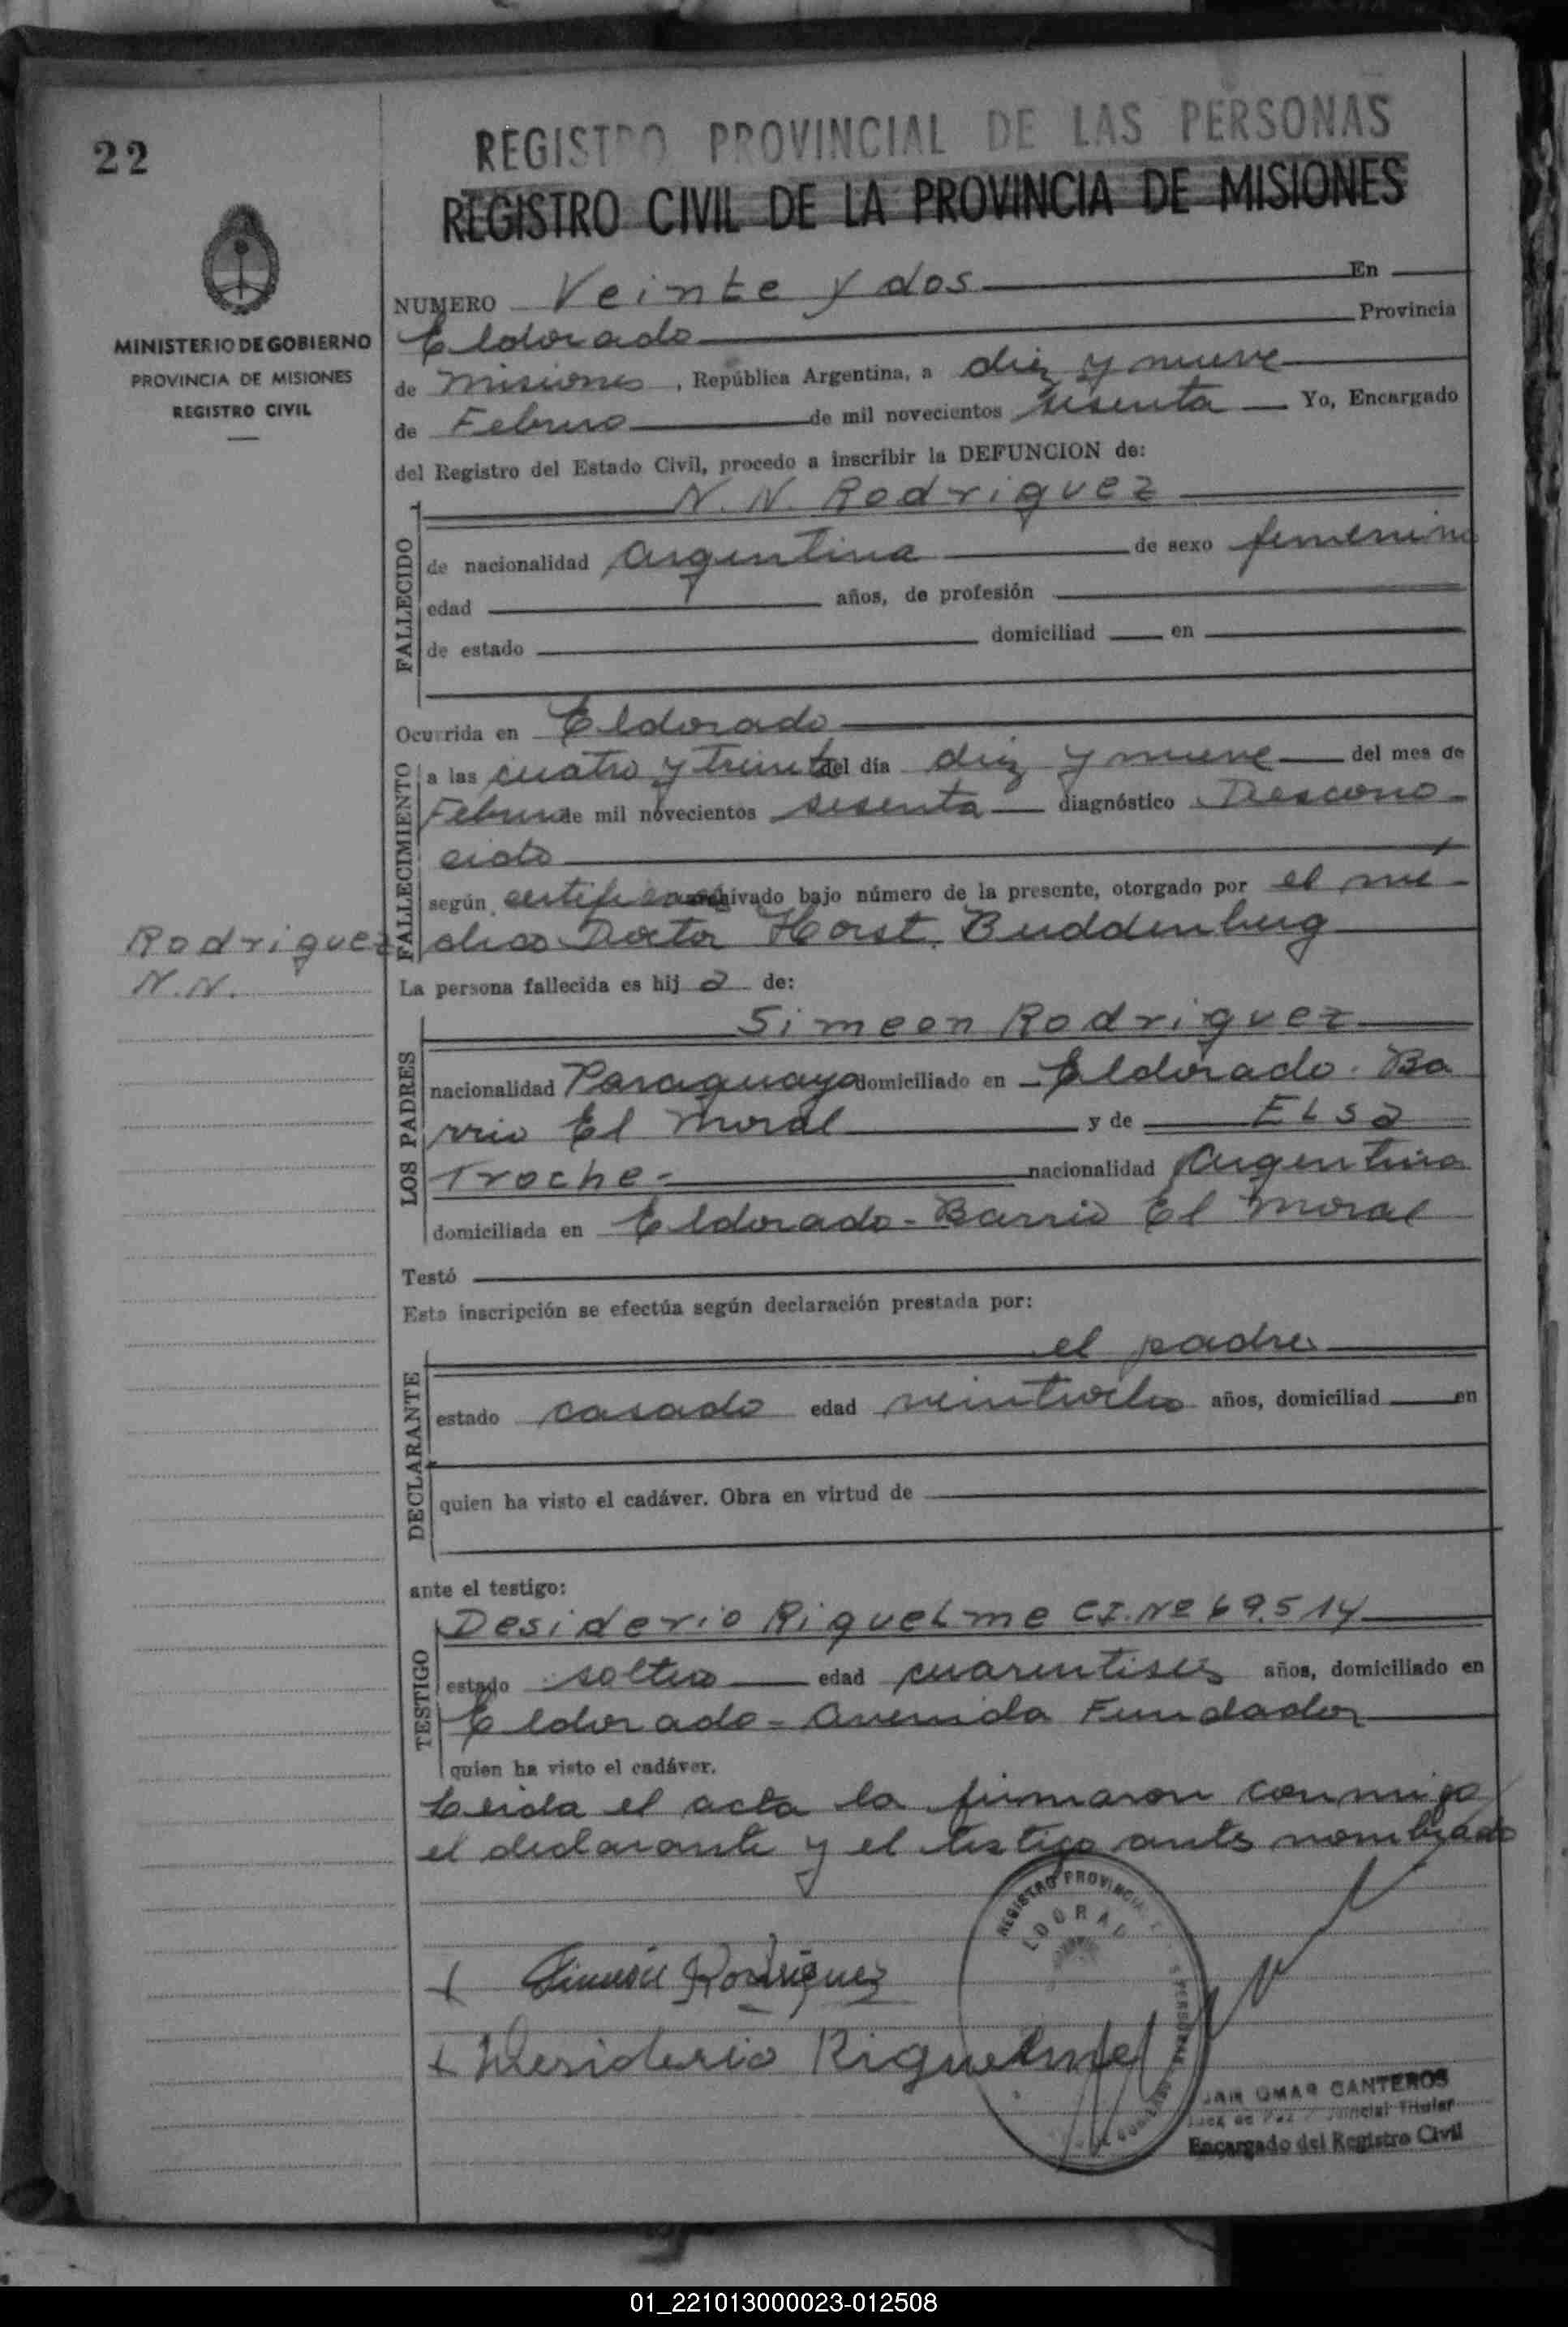 22
REGISTRO PROVINCIAL DE LAS PERSONAS
REGISTRO CIVIL DE LA PROVINCIA DE MISIONES
MINISTERIO DE GOBIERNO
PROVINCIA DE MISIONES
REGISTRO CIVIL
NUMERO Veinte y dos En
Eldorado Provincia
de Misiones, República Argentina, a diez y nueve
de Febrero de mil novecientos sesenta Yo, Encargado
del Registro del Estado Civil, procedo a inscribir la DEFUNCION de:
N. N. Rodriguez
FALLECIDO
de nacionalidad argentina de sexo femenino
edad años, de profesión
de estado domiciliad en
Ocurrida en Eldorado
FALLECIMIENTO
a las cuatro y treinta del día diez y nueve del mes de
Febrero de mil novecientos sesenta diagnóstico Descono-
cido
según certificado archivado bajo número de la presente, otorgado por el mé-
dico Doctor Horst Buddenberg
Rodriguez
N.N.
La persona fallecida es hija de:
LOS PADRES
Simeon Rodriguez
nacionalidad Paraguaya domiciliado en Eldorado. Ba
rrio El Moral y de ELSa
Troche- nacionalidad Argentina
domiciliada en Eldorado- Barrio El Moral
Testó
Esta inscripción se efectúa según declaración prestada por:
DECLARANTE
el padre
estado casado edad años, domiciliad en
quien ha visto el cadáver. Obra en virtud de
ante el testigo:
TESTIGO
Desiderio RiqueLme C.I. Nº 69.514
estado soltero edad cuarentiseis años, domiciliado en
Eldorado- Avenida Fundador
quien ha visto el cadáver.
Leida el acta la firmaron conmigo
el declarante y el testigo antes nombrado
REGISTRO PROVINCIAL
LDORAD
PERSONAS
x Simeón Rodriguez
x Desiderio Riquelme
OMAR CANTEROS
Juez de Paz Titular
Encargado del Registro Civil
01_221013000023-012508